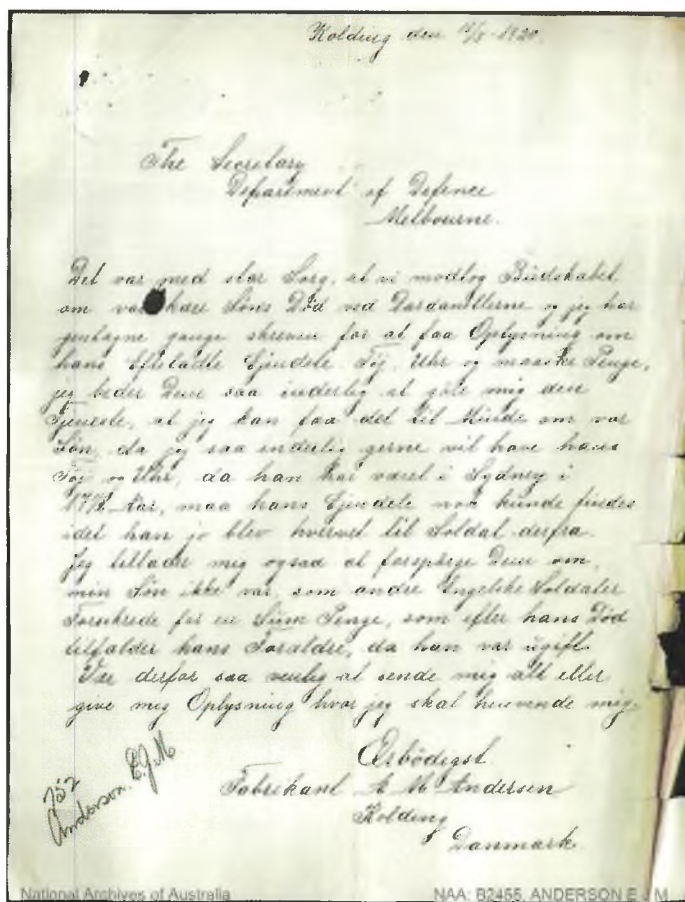 Kolding den 1920.
The Secretary
Department of Defence
Melbourne.
Det var med stor Sorg, at vi modtog Budskabet
om vor kære Søns Død ved Dardanellerne og jeg har
gentagne gange skreven for at faa Oplysning om
hans Efterladte Ejendele Tøj, Uhr og maaske Penge,
jeg beder Dem saa inderlig at göre mig den
Tjeneste, at jeg kan faa det til Minde om vor
Søn, da jeg saa inderlig gerne vil have hans
Tøj og Uhr, da han har været i Sydney i
Aar, maa hans Ejendele nok kunde findes
idet han jo blev hvervet til Soldat derfra.
Jeg tillader mig ogsaa at forespørge Dem om,
min Søn ikke var, som andre Engelske Soldater
Forsikrede for en Sum Penge, som efter hans Død
tilfalder hans Forældre, da han var ügift.
Vær derfor saa venlig at sende mig alt eller
give mig Oplysning hvor jeg skal henvende mig.
Ærbödigst
Fabrikant A. M. Andersen
Kolding
Danmark.
Anderson. E.J.M
National Archives of Australia
NAA: B2455, ANDERSON E J M